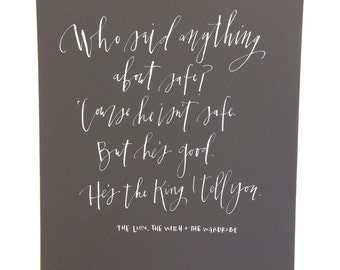 Who said anything
about safe?
'Course he isn't safe.
But he's good.
He's the King I tell you.
THE LION, THE WITCH + THE WARDROBE